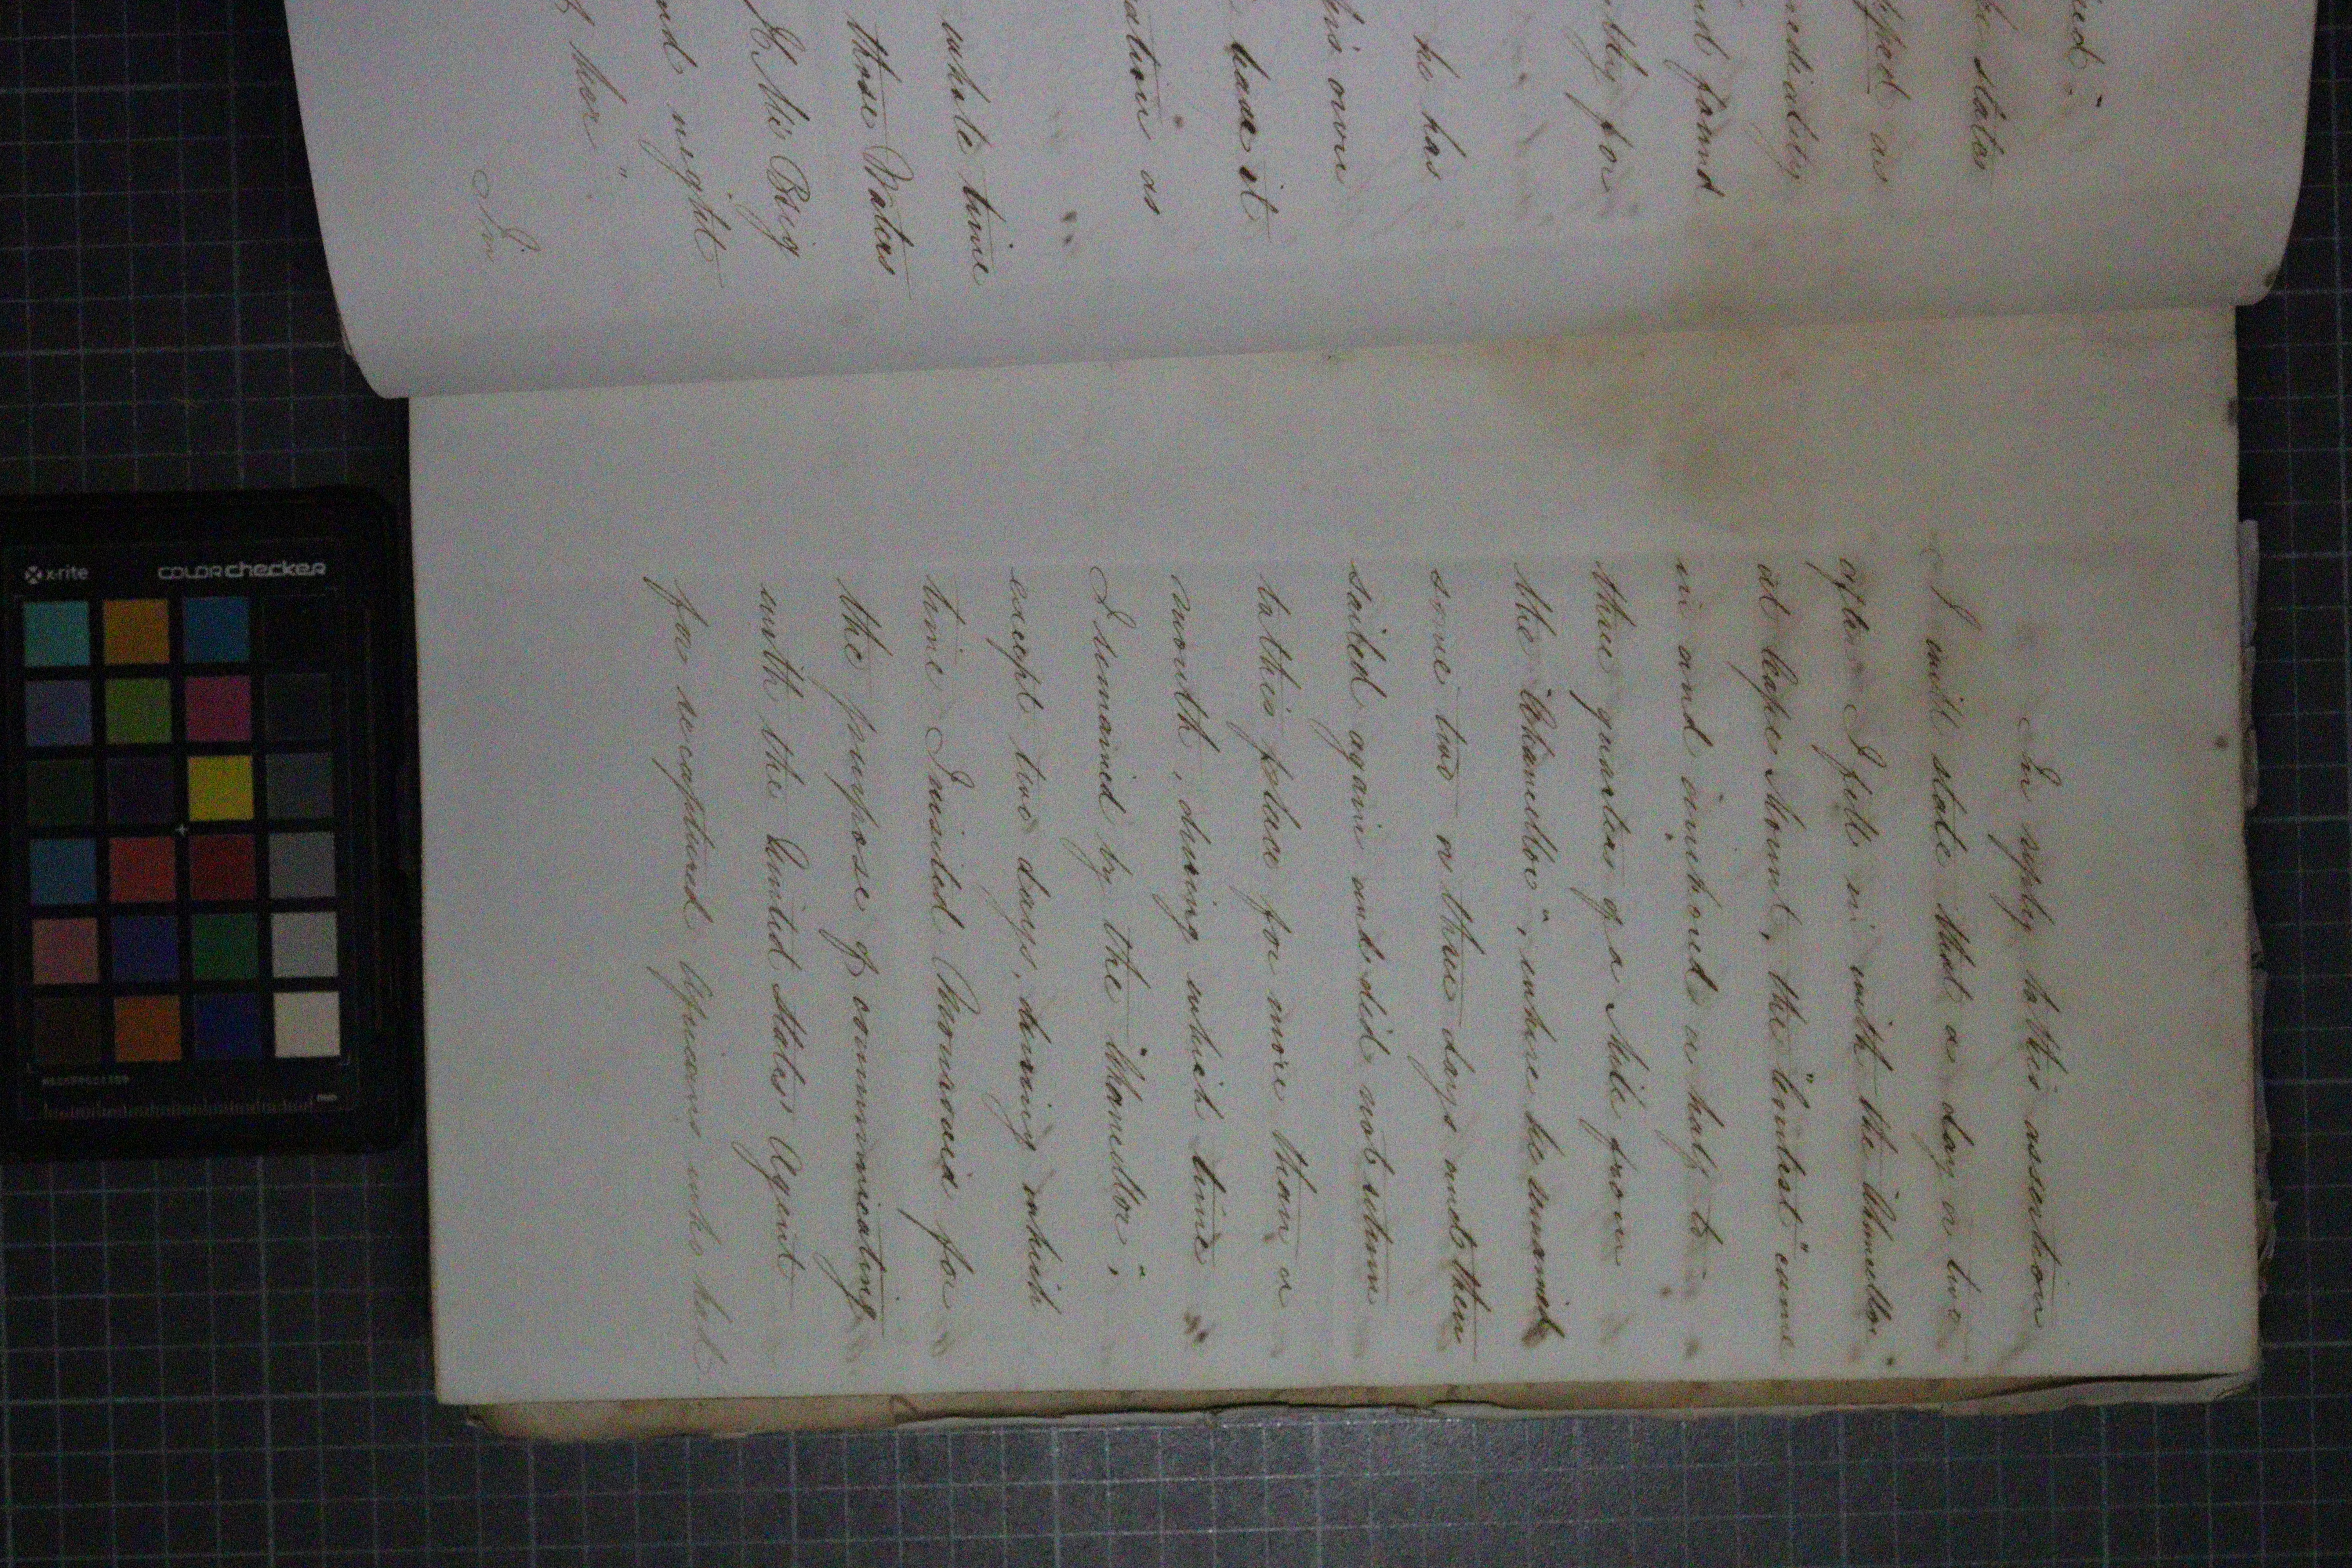 ued."
he states
pped as
mediately
nd found
ntly for
he has
his own
bade it
ation as
whole time
these Waters
of this Brig
nd night
t her".
In
In reply to this assertion
I will state that a day or two
after I fell in with the "Chancellor
at Cape Mount, the "Contest" came
in and anchored a half to
three quarters of a Mile from
the "Chancellor", where he remained
some two or three days and then
sailed again and did not return
to this place for more than a
month, during which time
I remained by the "Chancellor",
except two days, during which
time I visited Monrovia for
the purpose of communicating
with the United States Agent
for recaptured Africans who had
x-rite
COLORchecker
mm